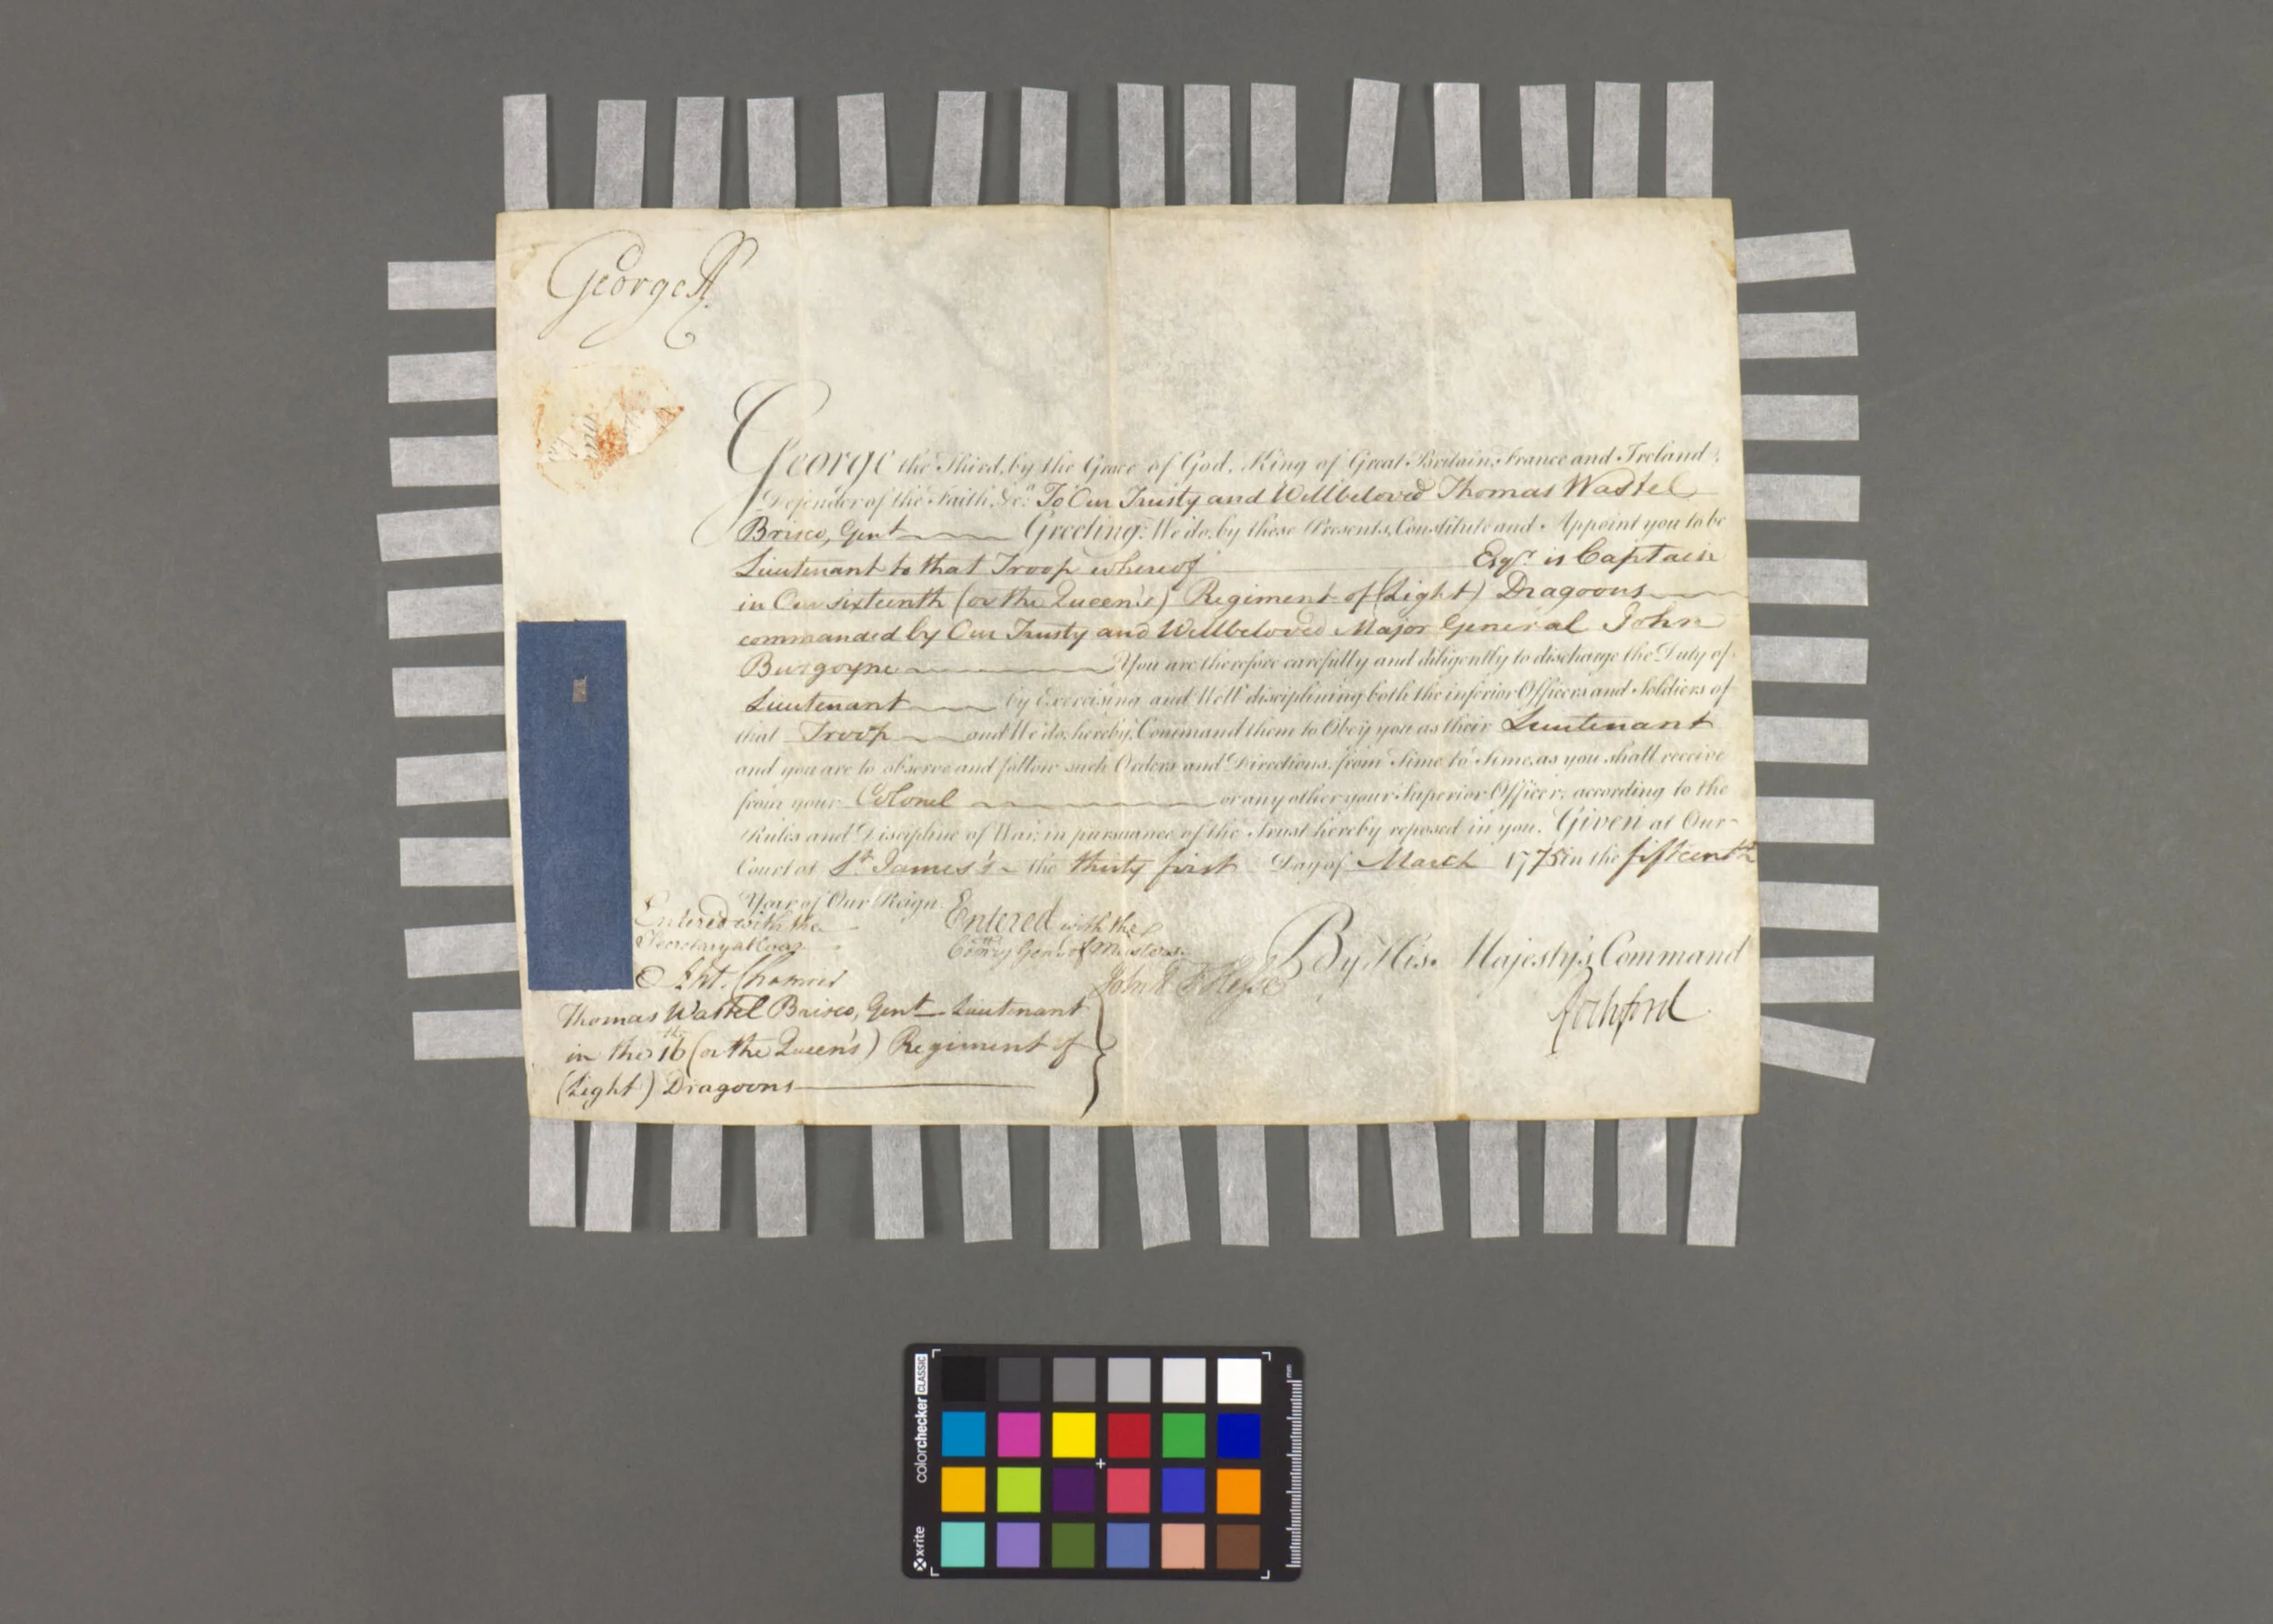 George R
George the Third, by the Grace of God, King of Great Britain, France and Ireland,
Defender of the Faith, &c.ª To Our Trusty and Wellbeloved Thomas Wastel
Brisco, Gent Greeting: We do, by these Presents, Constitute and Appoint you to be
Lieutenant to that Troop whereof Esqr. is Captain
in Our sixteenth (or the Queen's) Regiment of (Light) Dragoons
commanded by Our Trusty and Wellbeloved Major General John
Burgoyne You are therefore carefully and diligently to discharge the Duty of
Lieutenant by Exercising and Well disciplining both the inferior Officers and Soldiers of
that Troop and We do hereby Command them to Obey you as their Lieutenant
and you are to observe and follow such Orders and Directions, from Time to Time, as you shall receive
from your Colonel or any other your Superior Officer, according to the
Rules and Discipline of War, in pursuance of the Trust hereby reposed in you. Given at Our
Court at St. James's the thirty first Day of March 1775 in the fifteenth
Year of Our Reign.
Entered with the
Secretary at War
Ant. Chamier
Entered with the
Comry Genl. of Musters
John
By His Majesty's Command
Rochford
Thomas Wastel Brisco, Gent Lieutenant
in the 16th (or the Queen's) Regiment of
(Light) Dragoons
colorchecker CLASSIC
x-rite
mm